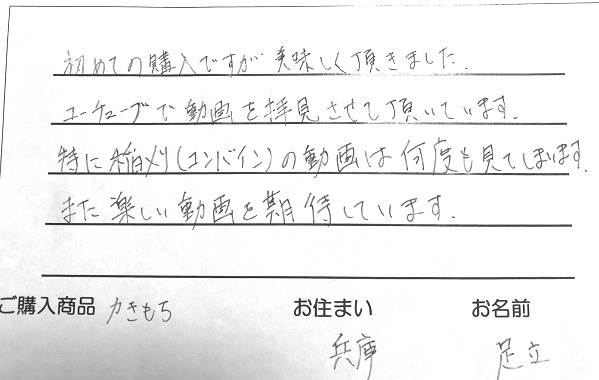 初めての購入ですが美味しく頂きました.
ユーチューブで動画を拝見させて頂いています.
特に稲刈(コンバイン)の動画は何度も見てしまいます.
また楽しい動画を期待しています.
ご購入商品 かきもち お住まい お名前
兵庫 足立